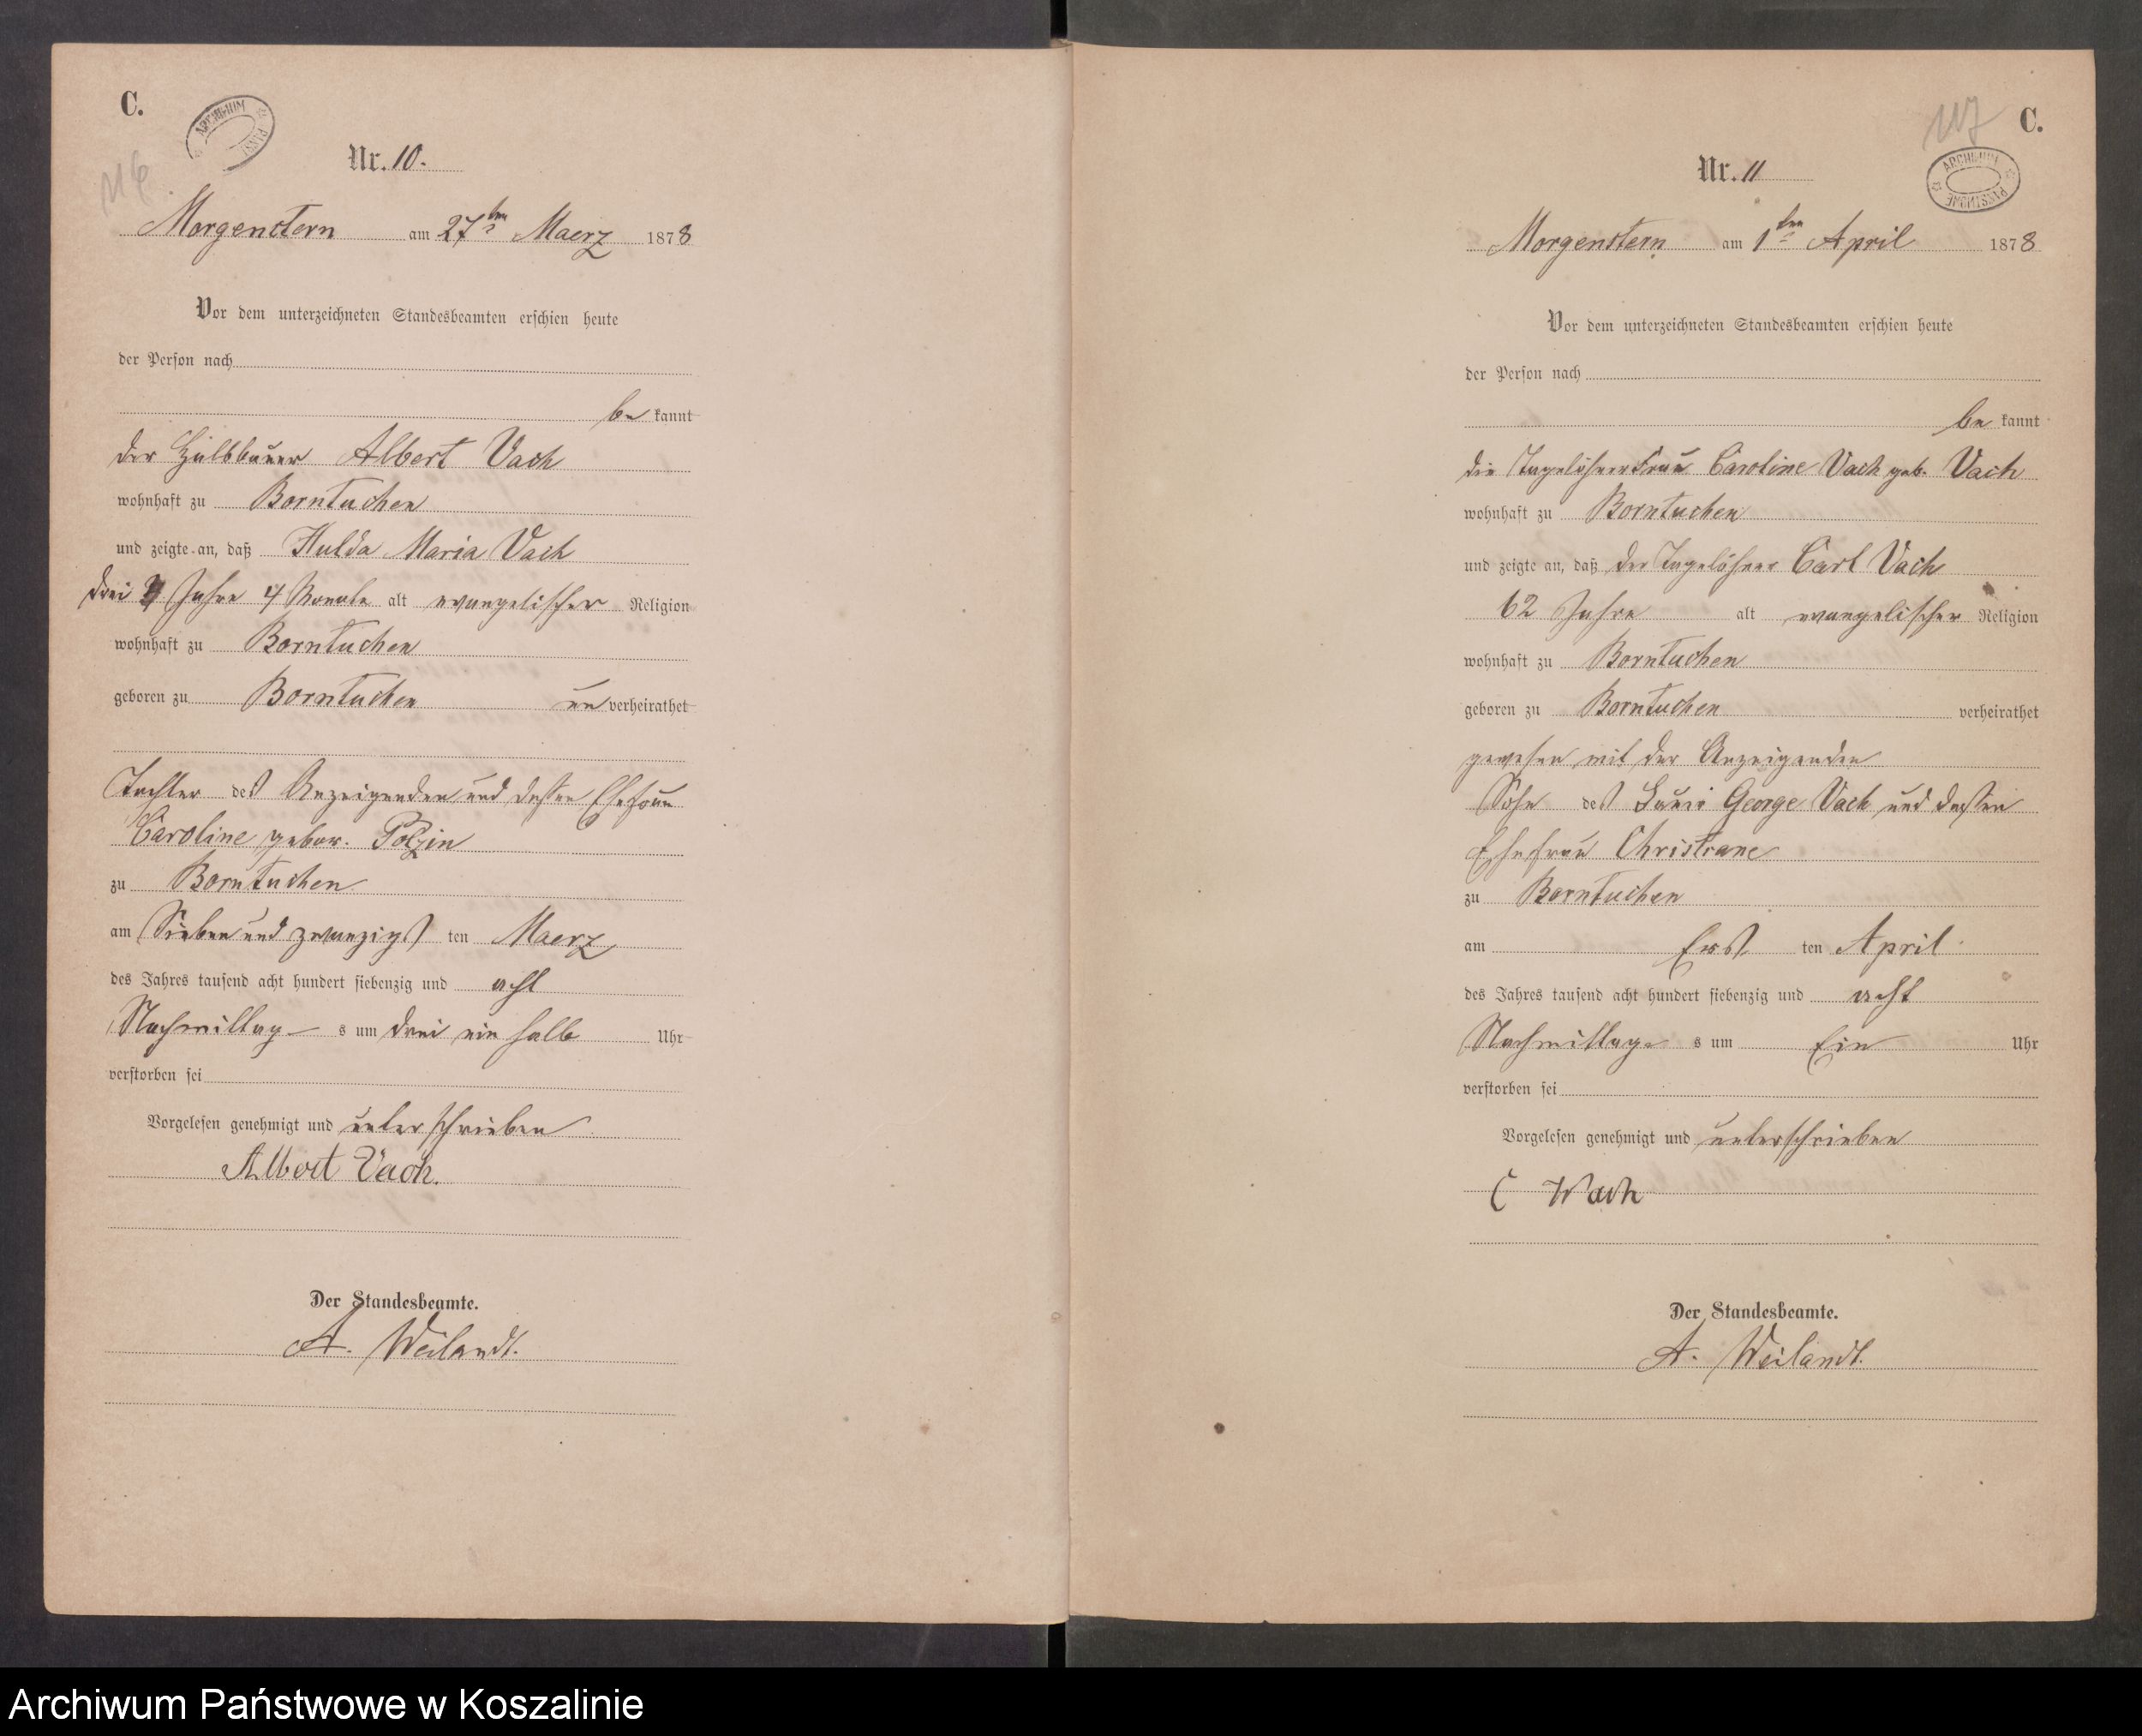 C.
ARCHIWUM PAŃST
116
Nr. 10.
Morgenstern am 27ten Maerz 1878
Vor dem unterzeichneten Standesbeamten erschien heute
der Person nach
be kannt
der Halbbauer Albert Vach
wohnhaft zu Borntuchen
und zeigte an, daß Hulda Maria Vach
drei Jahre 4 Monate alt evangelischer Religion
wohnhaft zu Borntuchen
geboren zu Borntuchen un verheirathet
Tochter des Anzeigenden und dessen Ehefrau
Caroline gebor. Polzin
zu Borntuchen
am Sieben und zwanzigs ten Maerz
des Jahres tausend acht hundert siebenzig und acht
Nachmittag s um drei ein halb Uhr
verstorben sei
Vorgelesen genehmigt und unterschrieben
Albert Vach.
Der Standesbeamte.
A. Weilandt.
117
C.
ARCHIWUM
Nr. 11
Morgenstern am 1ten April 1878
Vor dem unterzeichneten Standesbeamten erschien heute
der Person nach
be kannt
die Tagelöhnerfrau Caroline Vach geb. Vach
wohnhaft zu Borntuchen
und zeigte an, daß der Tagelöhner Carl Vach
62 Jahre alt evangelischer Religion
wohnhaft zu Borntuchen
geboren zu Borntuchen verheirathet
gewesen mit der Anzeigenden
Sohn des George Vach und dessen
Ehefrau Christiane
zu Borntuchen
am Ers ten April
des Jahres tausend acht hundert siebenzig und acht
Nachmittags s um Ein Uhr
verstorben sei
Vorgelesen genehmigt und unterschrieben
C Wach
Der Standesbeamte.
A. Weilandt.
Archiwum Państwowe w Koszalinie